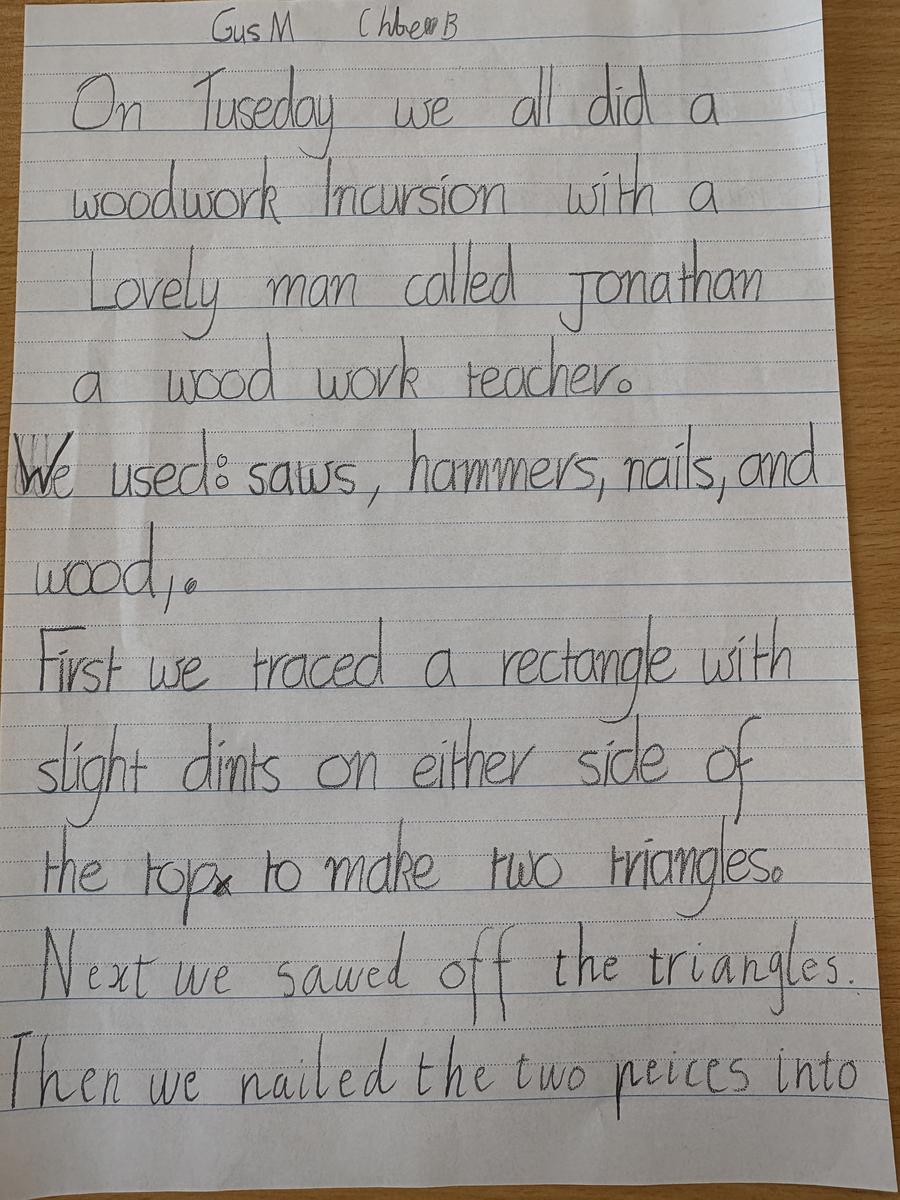 Gus M Chloe B
On Tuseday we all did a
woodwork Incursion with a
Lovely man called Jonathan
a wood work teacher.
We used: saws, hammers, nails, and
wood,.
First we traced a rectangle with
slight dints on either side of
the top to make two triangles.
Next we sawed off the triangles.
Then we nailed the two peices into